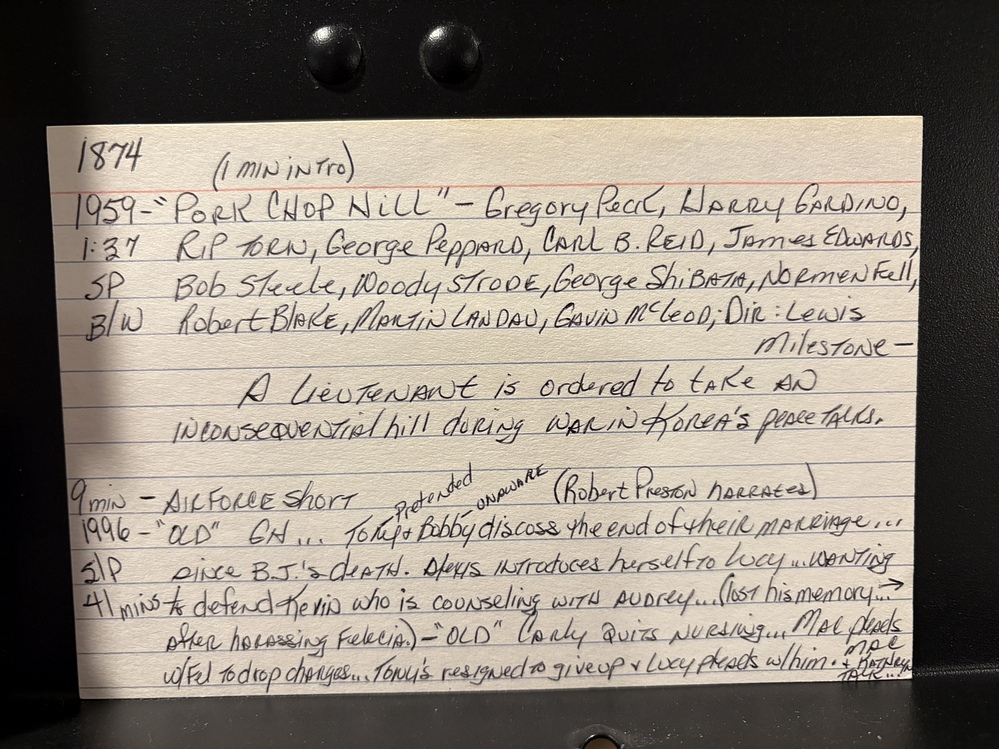 1874 (1 MIN INTRO)
1959-"PORK CHOP HILL" - Gregory Peck, HARRY GARDINO,
1:37 RIP TORN, George PEPPARD, CARL B. REID, JAMES EDWARDS,
SP Bob Steele, Woody STRODE, George ShiBATA, NORMEN Fell,
B/W Robert BLAKE, MARTIN LANDAU, GAVIN McLeod; Dir: Lewis
MILESTONE -
A LIEUTENANT is ordered to TAKE AN
INCONSEQUENTIAL hill during WAR IN KOREA'S peace TALKS.
9 min - AIR FORCE short pretended UNAWARE (Robert PRESTON NARRATES)
1996 - "OLD" GH ... TONY + Bobby discuss the end of their MARRIAGE ...
S/P since B.J.'s death. Alexis INTRODUCES herself to Lucy ... WANTING
41 mins to defend Kevin who is COUNSELING WITH AUDREY ... (lost his memory ... →
after harassing Felecia.) - "OLD" Carly QUITS NURSING ... MAC pleads
w/Fel to drop charges ... TONY'S resigned to give up + Lucy pleads w/him. + MAC
KATHRYN
TALK ...